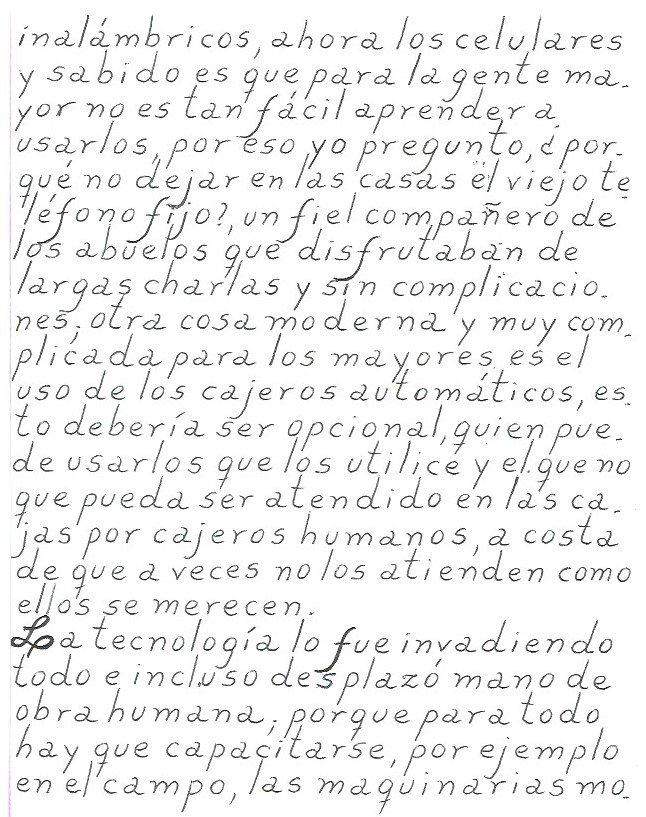 inalámbricos, ahora los celulares
y sabido es que para la gente ma-
yor no es tan fácil aprender a
usarlos, por eso yo pregunto, ¿por-
qué no dejar en las casas el viejo te
léfono fijo?, un fiel compañero de
los abuelos que disfrutaban de
largas charlas y sin complicacio-
nes; otra cosa moderna y muy com-
plicada para los mayores es el
uso de los cajeros automáticos, es-
to debería ser opcional, quien pue-
de usarlos que los utilice y el que no
que pueda ser atendido en las ca-
jas por cajeros humanos, a costa
de que a veces no los atienden como
ellos se merecen.
La tecnología lo fue invadiendo
todo e incluso desplazó mano de
obra humana; porque para todo
hay que capacitarse, por ejemplo
en el campo, las maquinarias mo-